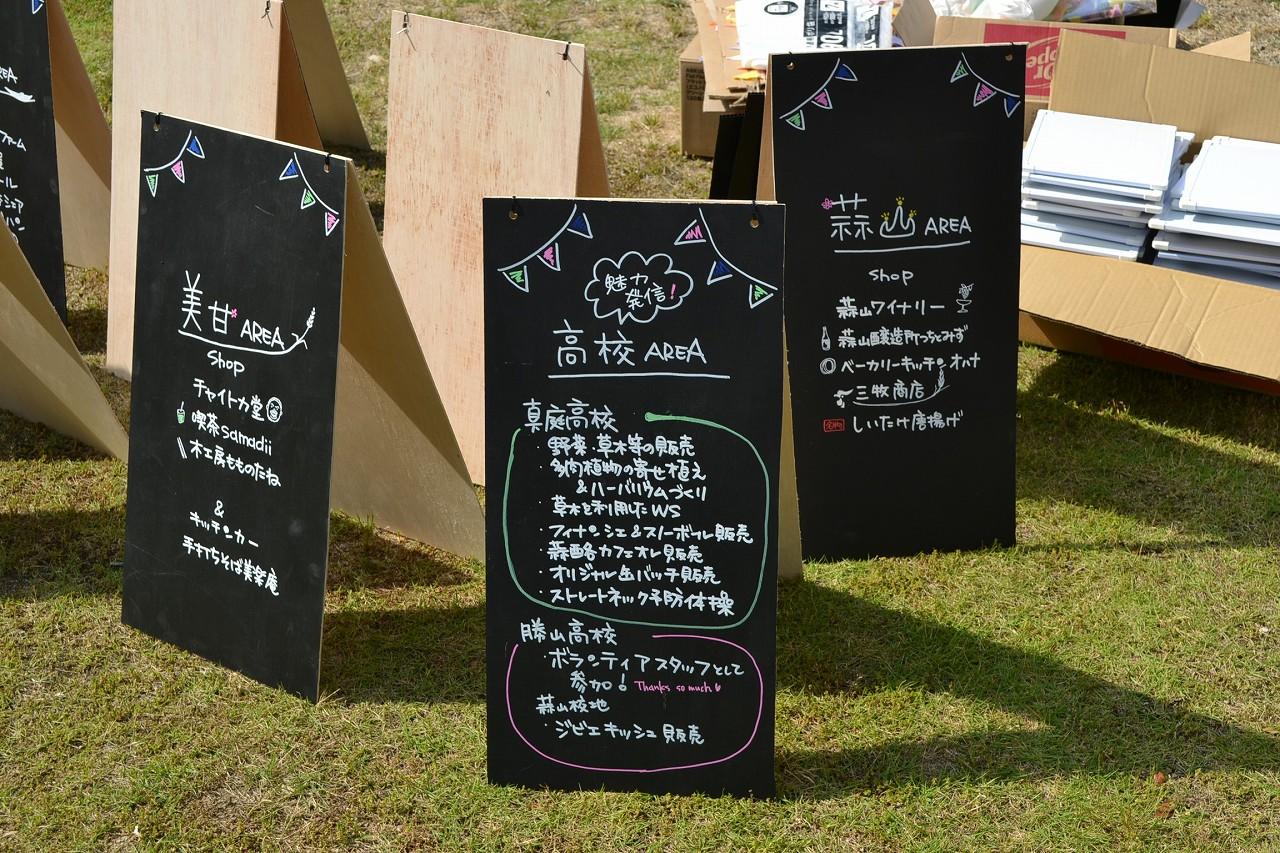 AREA
ファーム
美甘 AREA
shop
チャイトカ堂
喫茶samadii
木工房もものたね
&
キッチンカー
手打ちそば美楽庵
魅力
発信!
高校 AREA
真庭高校
・野菜、草木等の販売
・多肉植物の寄せ植え
&ハーバリウムづくり
・草木を利用したWS
・フィナンシェ&スノーボール販売
・蒜酪カフェオレ販売
・オリジナル缶バッチ販売
・ストレートネック予防体操
勝山高校
・ボランティアスタッフとして
参加! Thanks so much
蒜山校地
・ジビエキッシュ販売
蒜山 AREA
shop
蒜山ワイナリー
蒜山醸造所つちとみず
ベーカリーキッチンオハナ
三牧商店
しいたけ唐揚げ